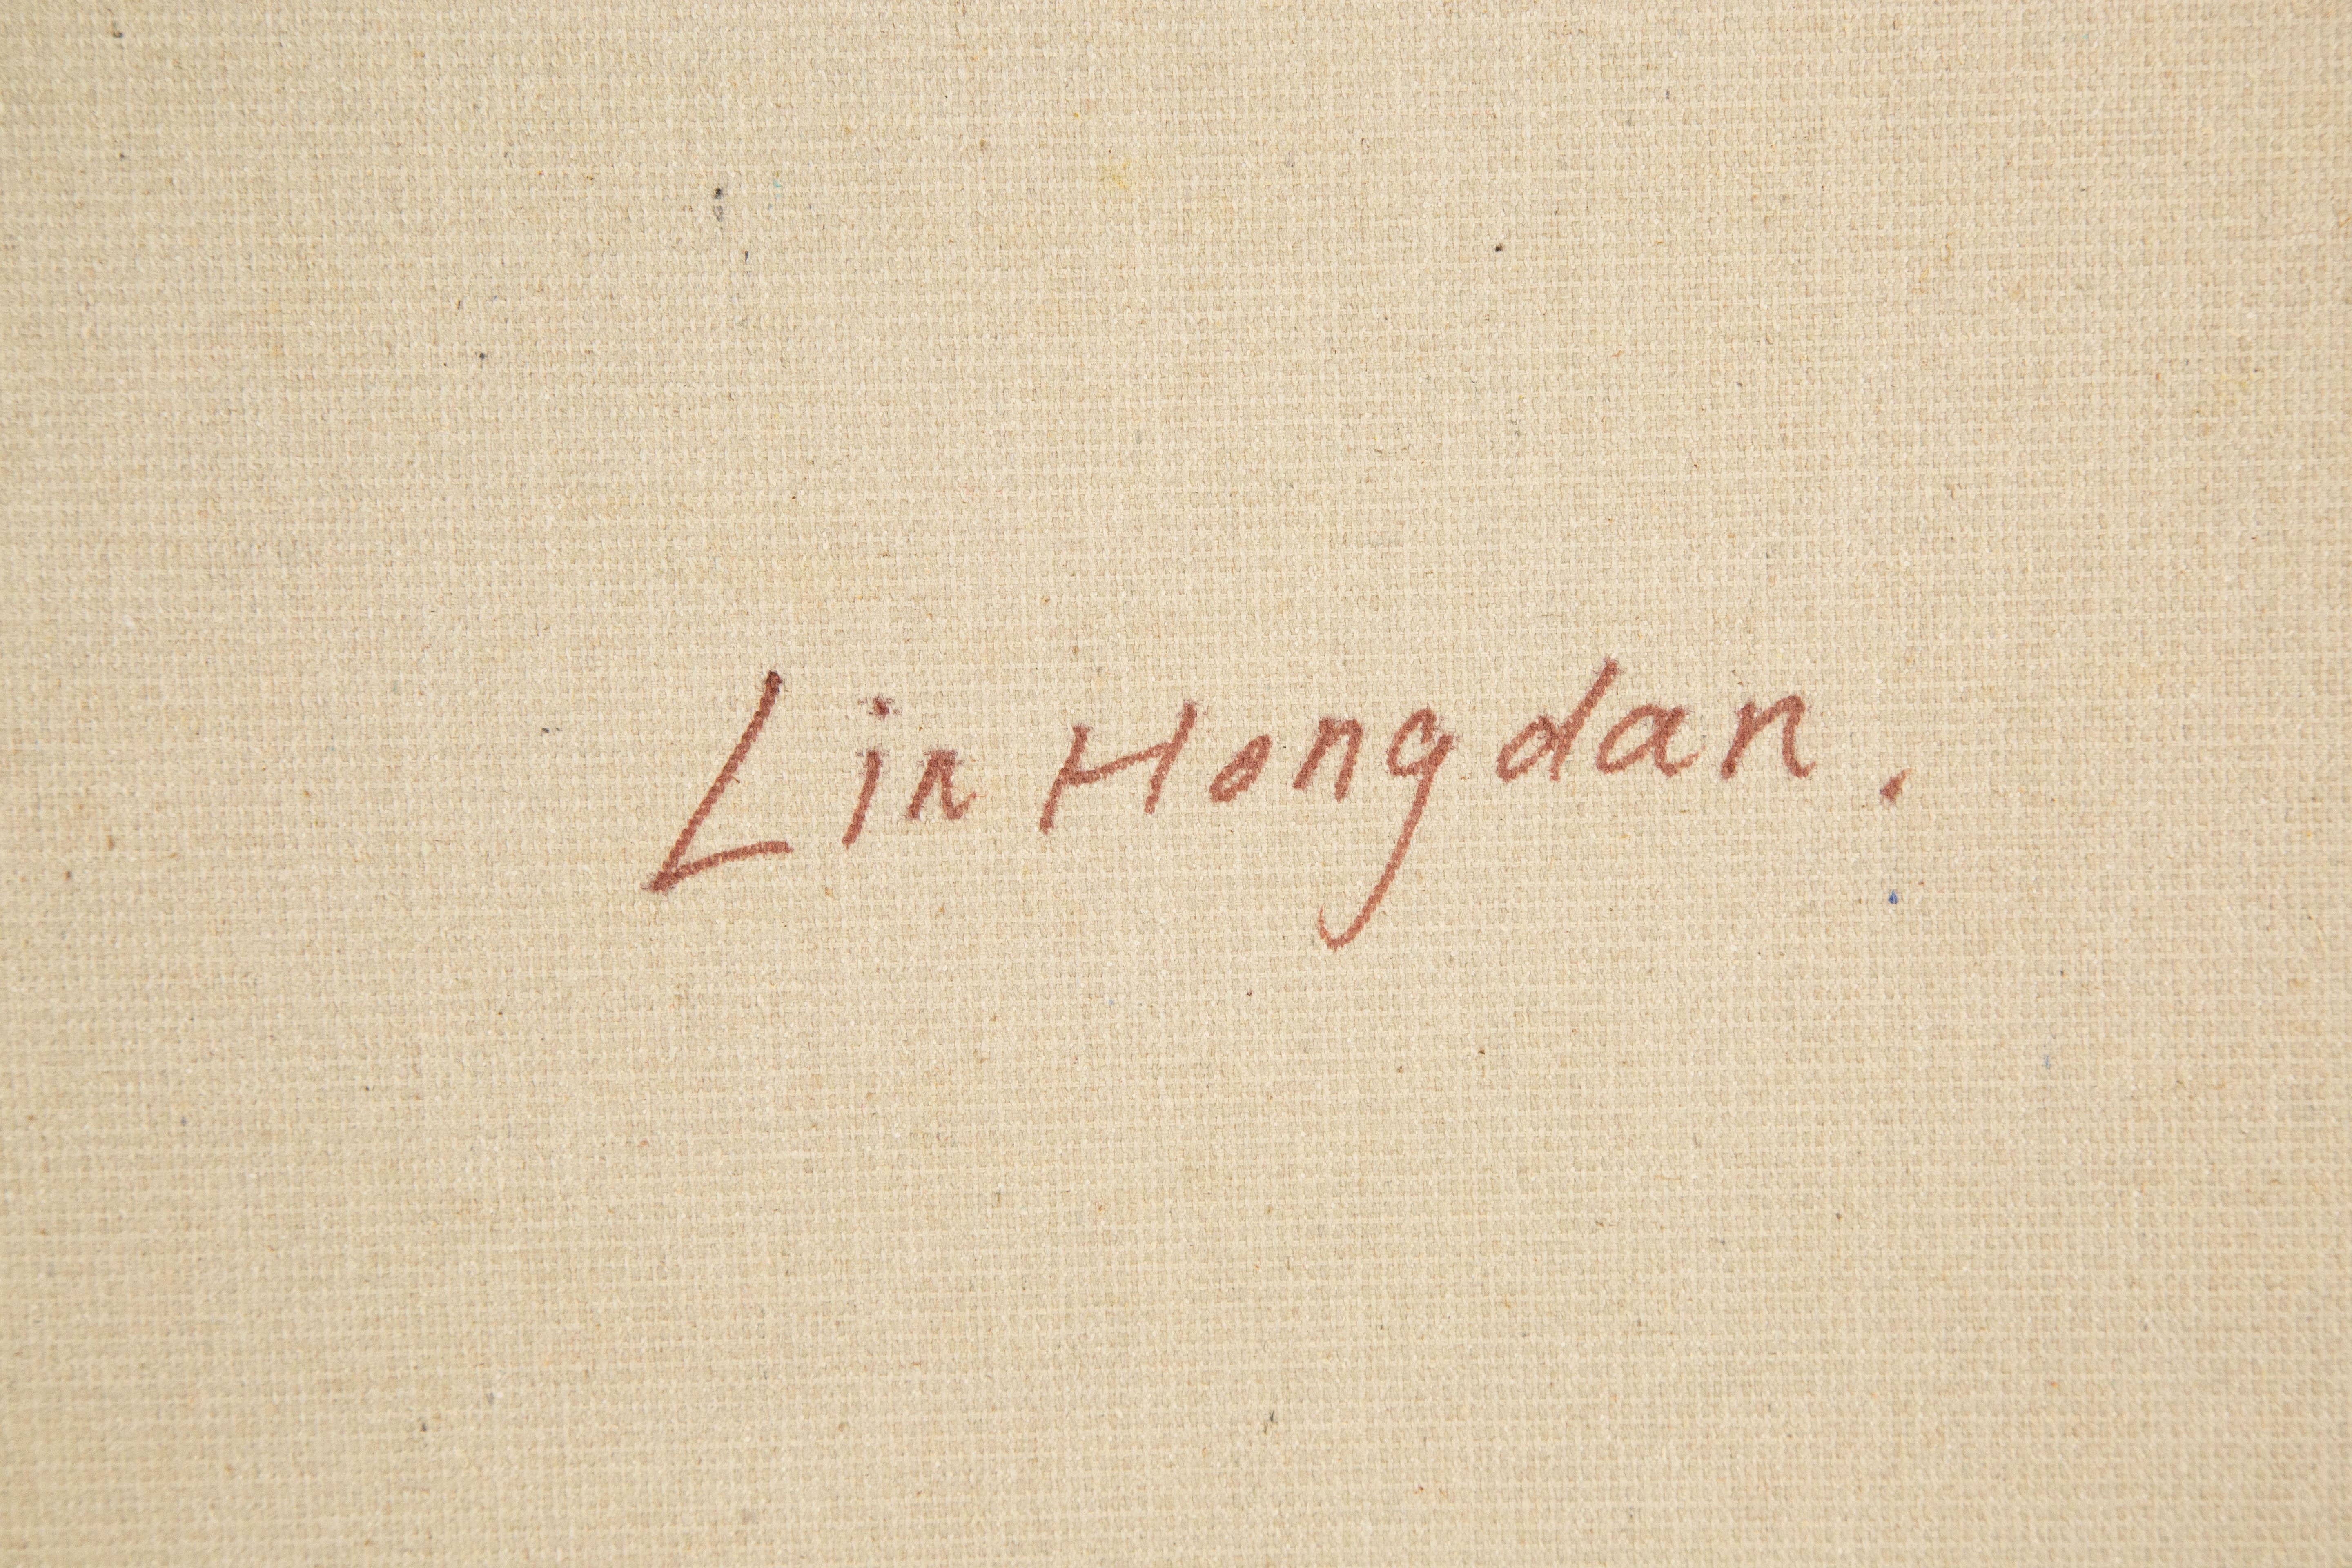 Lin Hongdan.